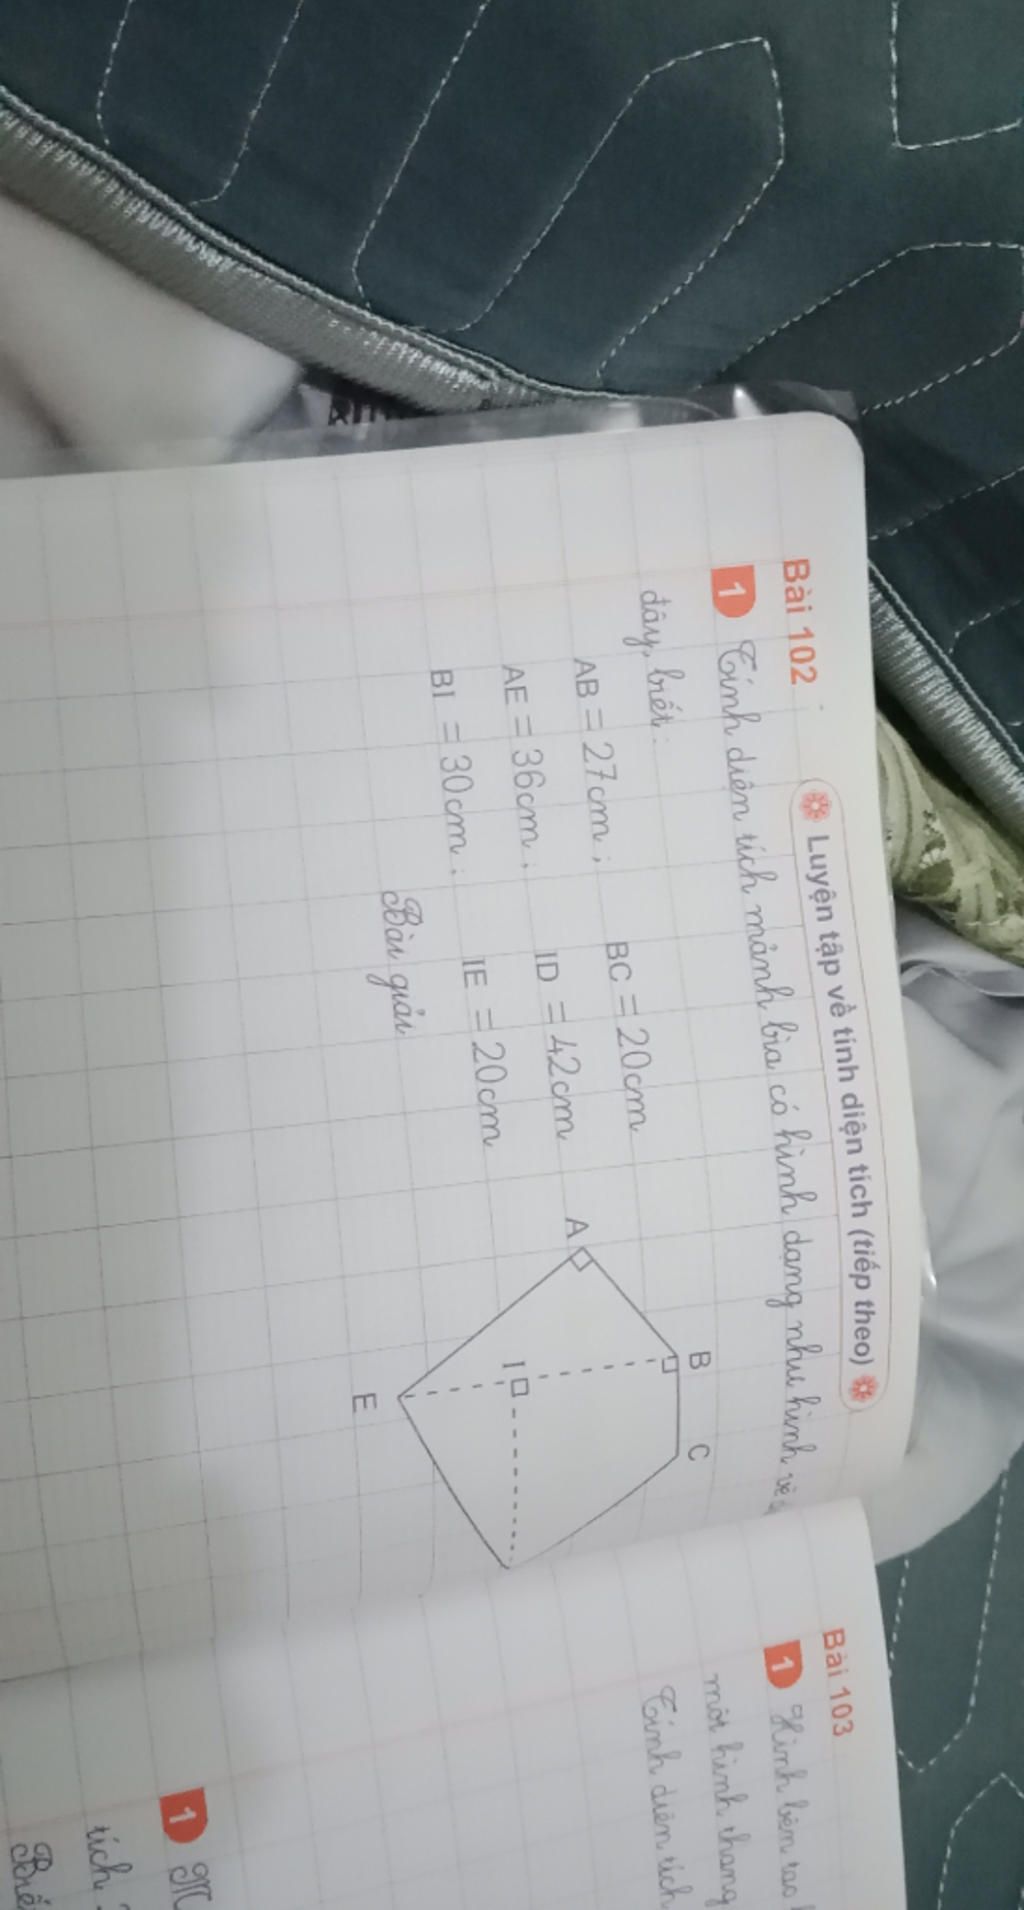 Bài 102
Luyện tập về tính diện tích (tiếp theo)
1 Tính diện tích mảnh bìa có hình dạng như hình vẽ
đây, biết:
AB = 27cm; BC = 20cm
AE = 36cm; ID = 42cm
BI = 30cm; IE = 20cm
Bài giải
A
B
C
I
E
Bài 103
1 Hình bên tạo
một hình thang
Tính diện tích
1
tích